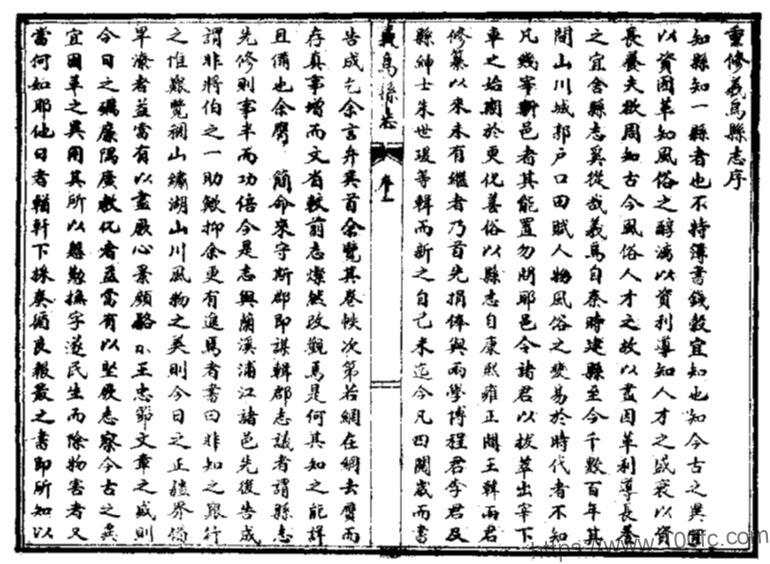 重修義烏縣志序
知縣知一縣者也不特簿書錢穀宜知也知今古之異宜
以資因革知風俗之醇漓以資利導知人才之盛衰以資
長養夫欲周知古今風俗人才之故以盡因革利導長養
之宜舍縣志奚從哉義烏自秦時建縣至今千數百年其
間山川城郭戶口田賦人物風俗之變易於時代者不知
凡幾宰斯邑者其能置勿問耶邑令諸君以拔萃出宰下
車之始期於更化善俗以縣志自康熙雍正間王韓兩君
修纂以來未有繼者乃首先捐俸與兩學博程君李君及
縣紳士朱世瑗等輯而新之自己未迄今凡四閱歲而書
義烏縣志
序
告成乞余言弁其首余覽其卷帙次第若網在綱去贋而
存真事增而文省較前志燦然改觀焉是何其知之能詳
且備也余膺 簡命來守斯郡即謀輯郡志議者謂縣志
先修則事半而功倍今是志與蘭溪浦江諸邑先後告成
謂非將伯之一助歟抑余更有進焉者書曰非知之艱行
之惟艱覽稠山繡湖山川風物之美則今日之正疆界備
旱潦者益當有以盡厥心景顏駱宗王忠節文章之盛則
今日之礪廉隅廣教化者益當有以堅厥志察今古之異
宜因革之異用其所以懇勤撫字遂民生而除物害者又
當何如耶他日者輶軒下採奏循良報最之書即所知以
https://www.100fc.com